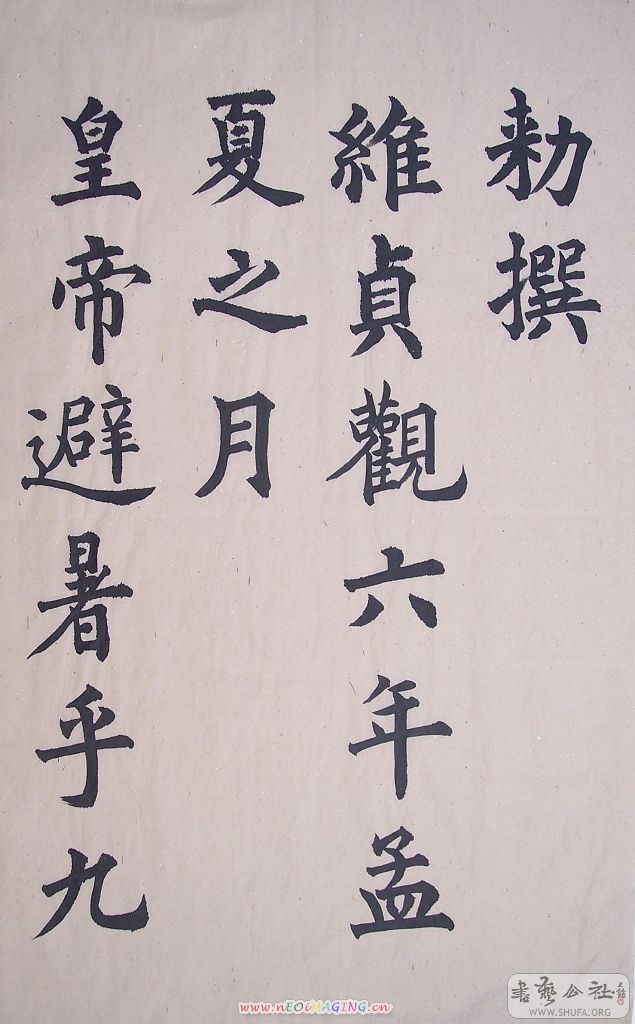 勑撰
維貞觀六年孟
夏之月
皇帝避暑乎九
www.nEOiMAGING.cn
書藝公社
WWW.SHUFA.ORG